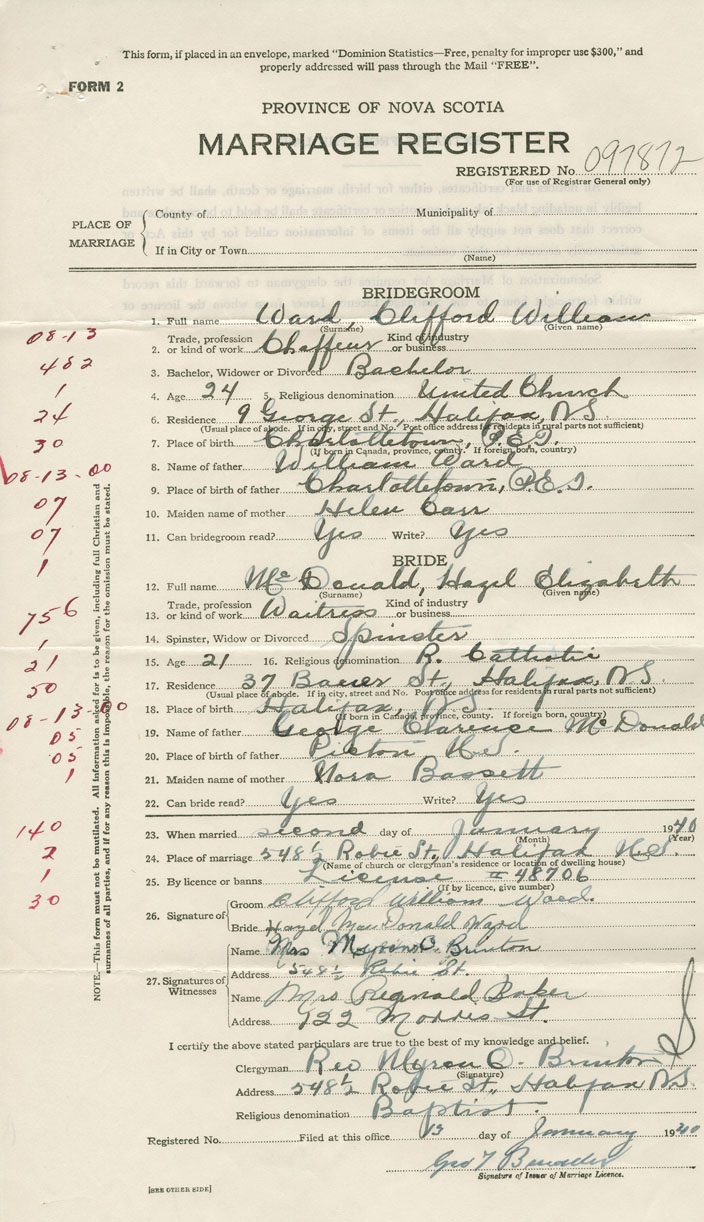 This form, if placed in an envelope, marked "Dominion Statistics—Free, penalty for improper use $300," and
properly addressed will pass through the Mail "FREE".
FORM 2
PROVINCE OF NOVA SCOTIA
MARRIAGE REGISTER
REGISTERED No. 097872
(For use of Registrar General only)
PLACE OF MARRIAGE
County of Municipality of
If in City or Town
(Name)
BRIDEGROOM
1. Full name Ward, Clifford William
(Surname) (Given name)
08-13
2. Trade, profession or kind of work Chaffeur Kind of industry or business
482
3. Bachelor, Widower or Divorced Bachelor
1
4. Age 24 5. Religious denomination United Church
24
6. Residence 9 George St., Halifax, N.S.
(Usual place of abode. If in city, street and No. Post office address for residents in rural parts not sufficient)
30
7. Place of birth Charlottetown, P.E.I.
(If born in Canada, province, county. If foreign born, country)
08-13-00
8. Name of father William Ward
9. Place of father Charlottetown, P.E.I.
07
10. Maiden name of mother Helen Carr
07
11. Can bridegroom read? Yes Write? Yes
1
BRIDE
12. Full name McDonald, Hazel Elizabeth
(Surname) (Given name)
756
13. Trade, profession or kind of work Waitress Kind of industry or business
1
14. Spinster, Widow or Divorced Spinster
21
15. Age 21 16. Religious denomination R.
50
17. Residence 37 Bauer St., Halifax, N.S.
(Usual place of abode. If in city, street and No. Post office address for residents in rural parts not sufficient)
08-13-00
18. Place of birth Halifax, N.S.
(If born in Canada, province, county. If foreign born, country)
05
19. Name of father George Clarence McDonald
05
20. Place of birth of father Pictou N.S.
1
21. Maiden name of mother Nora Bassett
22. Can bride read? Yes Write? Yes
140
23. When married second day of January 1940
(Month) (Year)
2
24. Place of marriage 548½ Robie St., Halifax N.S.
(Name of church or clergyman's residence or location of dwelling house)
1
25. By licence or banns License # 48706
(If by licence, give number)
30
26. Signature of
Groom Clifford William Ward.
Bride Hazel MacDonald Ward
27. Signatures of Witnesses
Name Mrs Myron O. Brinton
Address 548½ Robie St.
Name Mrs Reginald Baker
Address 122 Morris St.
I certify the above stated particulars are true to the best of my knowledge and belief.
Clergyman Rev Myron O. Brinton
(Signature)
Address 548½ Robie St., Halifax N.S.
Religious denomination Baptist.
Registered No. Filed at this office 13 day of January 1940
Geo T
Signature of Issuer of Marriage Licence.
[SEE OTHER SIDE]
NOTE.—This form must not be mutilated. All information asked for is to be given, including full Christian and
surnames of all parties, and if for any reason this is impossible, the reason for the omission must be stated.